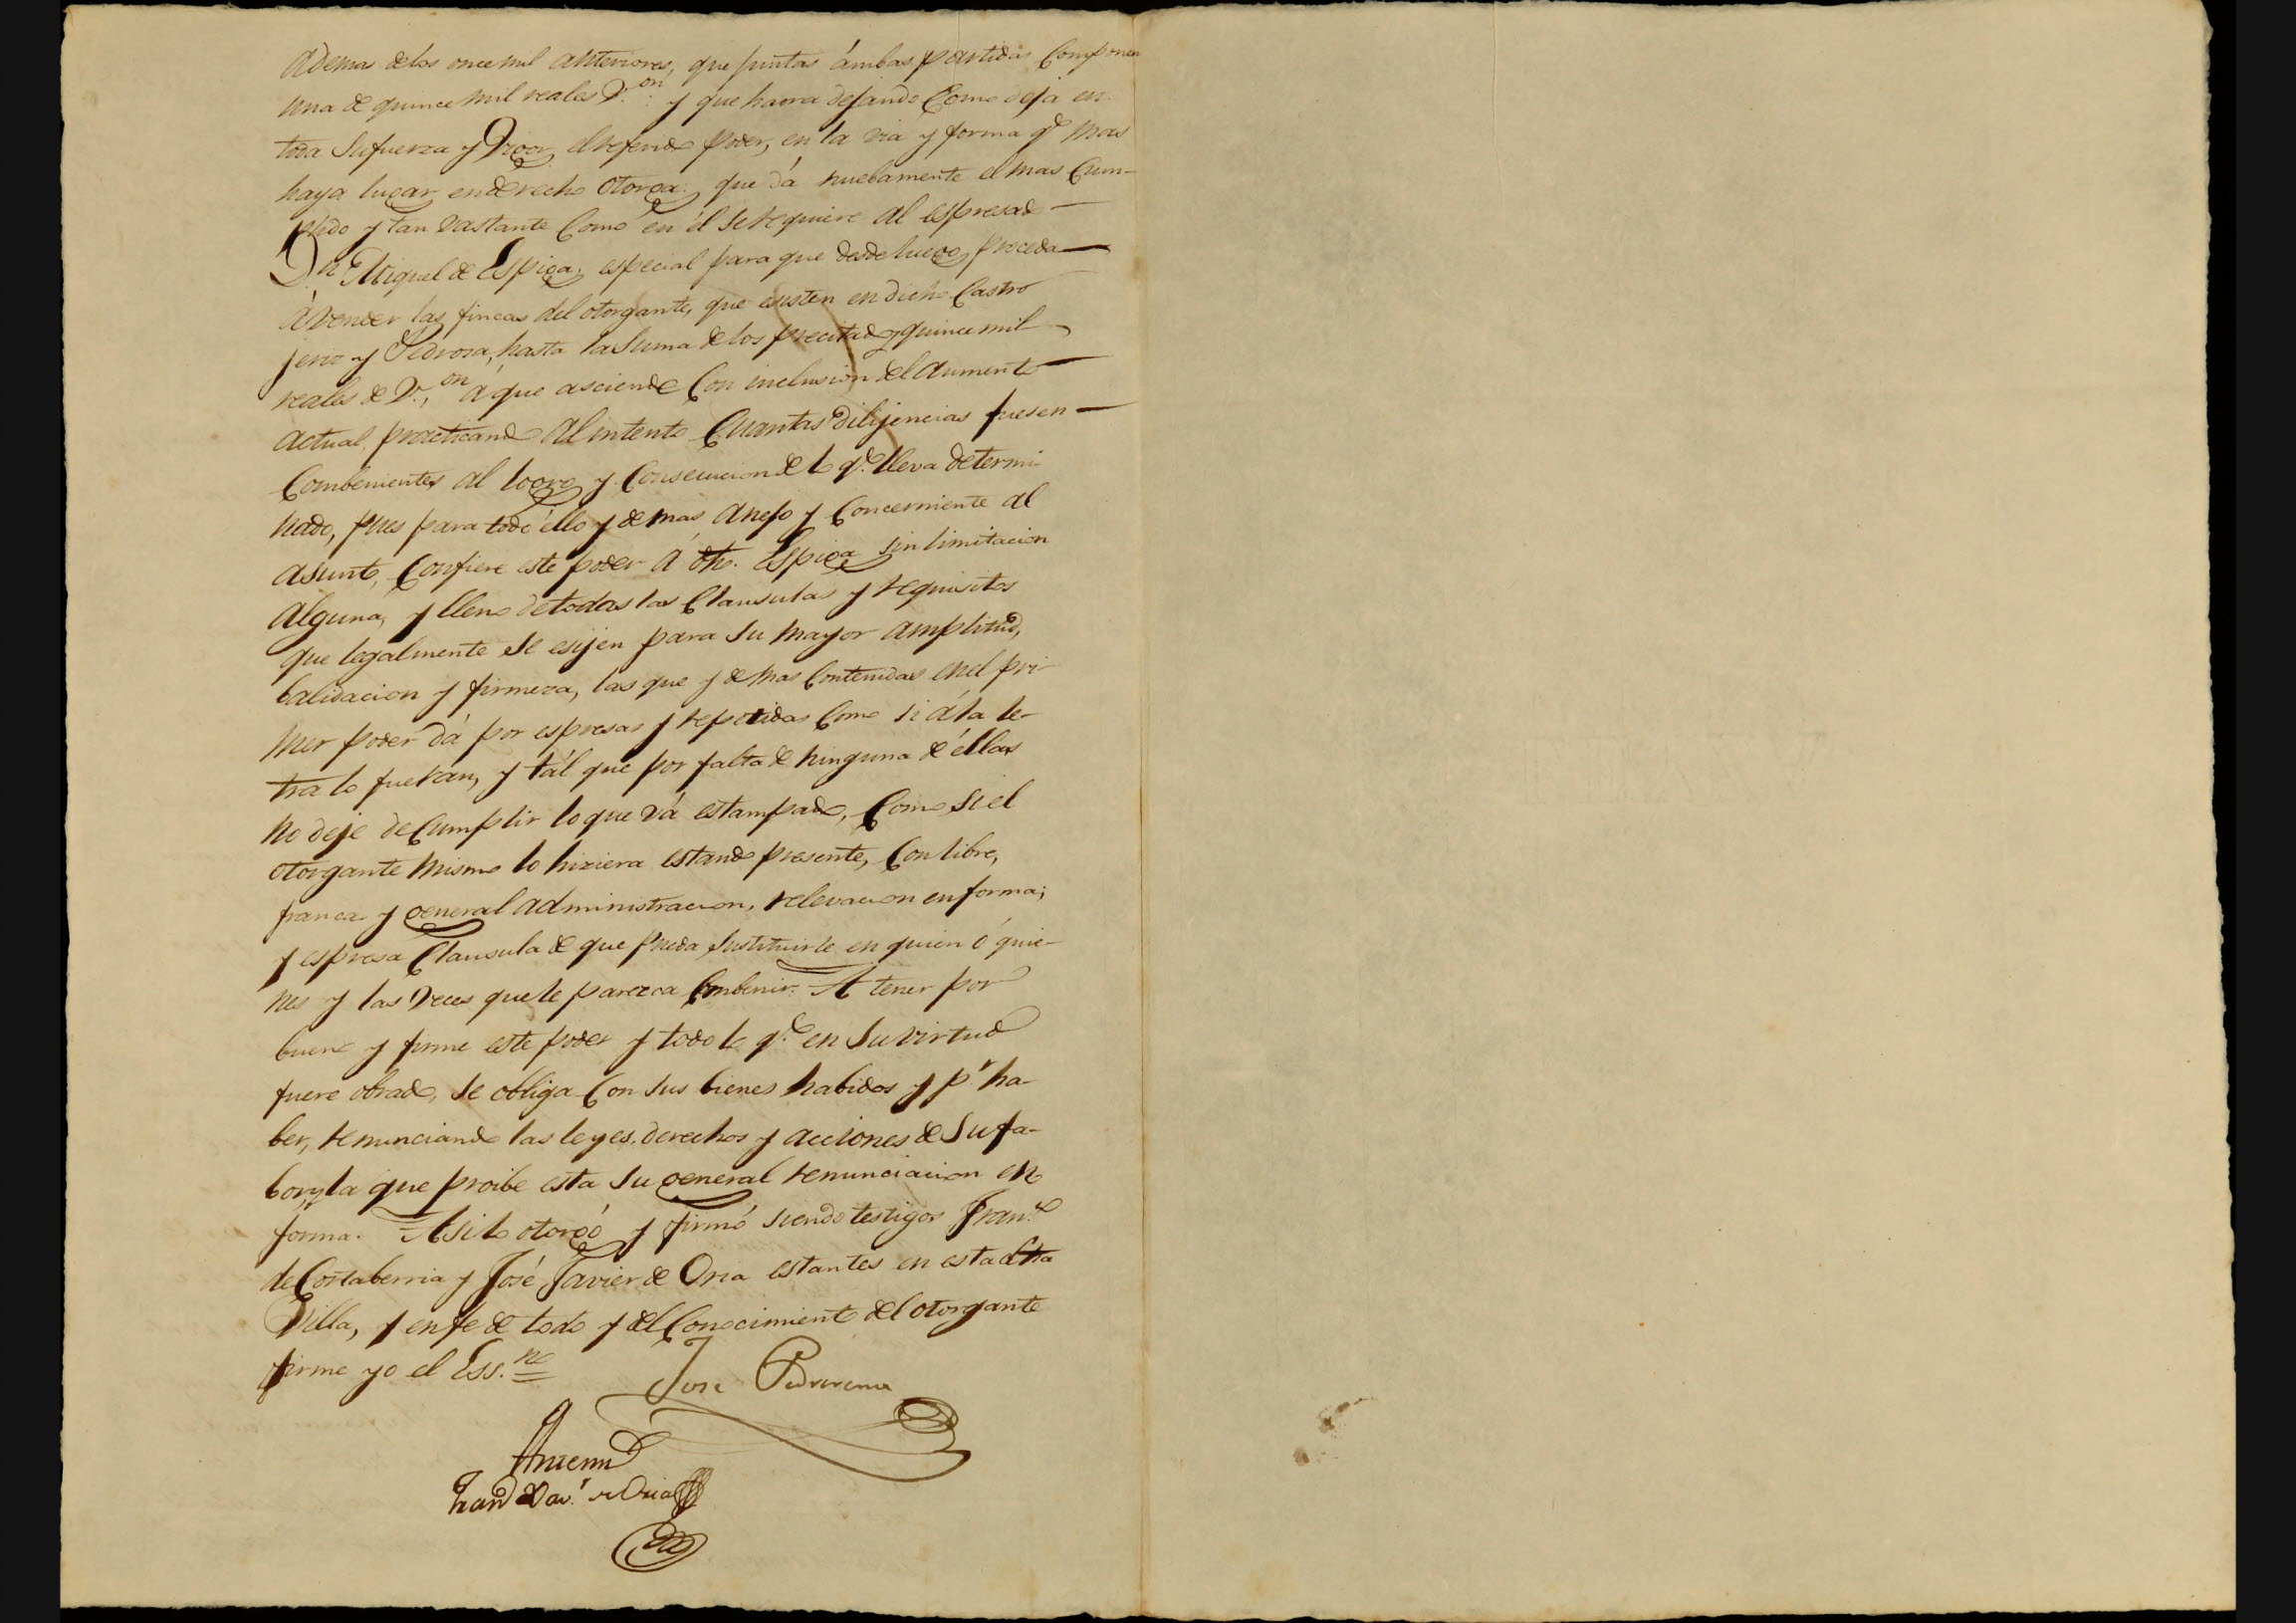 ademas delos once mil anteriores, que juntas ámbas partidas Componen
una de quince mil reales V.on: y que haora dejando Como deja en
toda su fuerza y Vigor el referido poder, en la via y forma q.e mas
haya lugar en derecho otorga: que dá nuebamente el mas Cum-
plido y tan vastante Como en él se requiere al espresado
D.n Miguel de Espiga, especial para que desde luego proceda
á vender las fincas del otorgante, que esisten en dicho Castro
jeriz y Pedrosa, hasta la Suma de los precitados quince mil
reales de V.on, á que asciende Con inclusion del aumento
actual, practicando al intento Cuantas dilijencias fuesen
Combenientes al logro y Consecucion de lo q.e lleva determi-
nado, pues para todo ello y demas anejo y Concerniente al
asunto, Confiere este poder á dho. Espiga sin limitacion
alguna, y lleno de todas las Clausulas y requisitos
que legalmente se esijen para su mayor amplitud,
balidacion y firmeza, las que y demas Contenidas en el pri-
mer poder dá por espresas y repetidas Como si á la le-
tra lo fueran, y tál que por falta de ninguna de éllas
no deje de Cumplir lo que vá estampado, Como si el
otorgante mismo lo hiziera estando presente, Con libre,
franca y general administracion, relevacion en forma;
y espresa Clausula de que pueda sustituirle en quien ó quie-
nes y las veces que le parezca Combenir. A tener por
bueno y firme este poder y todo lo q.e en su virtud
fuere obrado, se obliga Con sus bienes habidos y p.r ha-
ber, renunciando las leyes, derechos y acciones de su fa-
bor, y la que proibe esta su general renunciacion en
forma. Asi lo otorgó y firmó siendo testigos Fran.co
de Cortaberria y José Javier de Oria estantes en esta dha
Villa, y en fe de todo y del Conocimiento del otorgante
firme yo el Ess.no
Jose
Antemi
de Oria